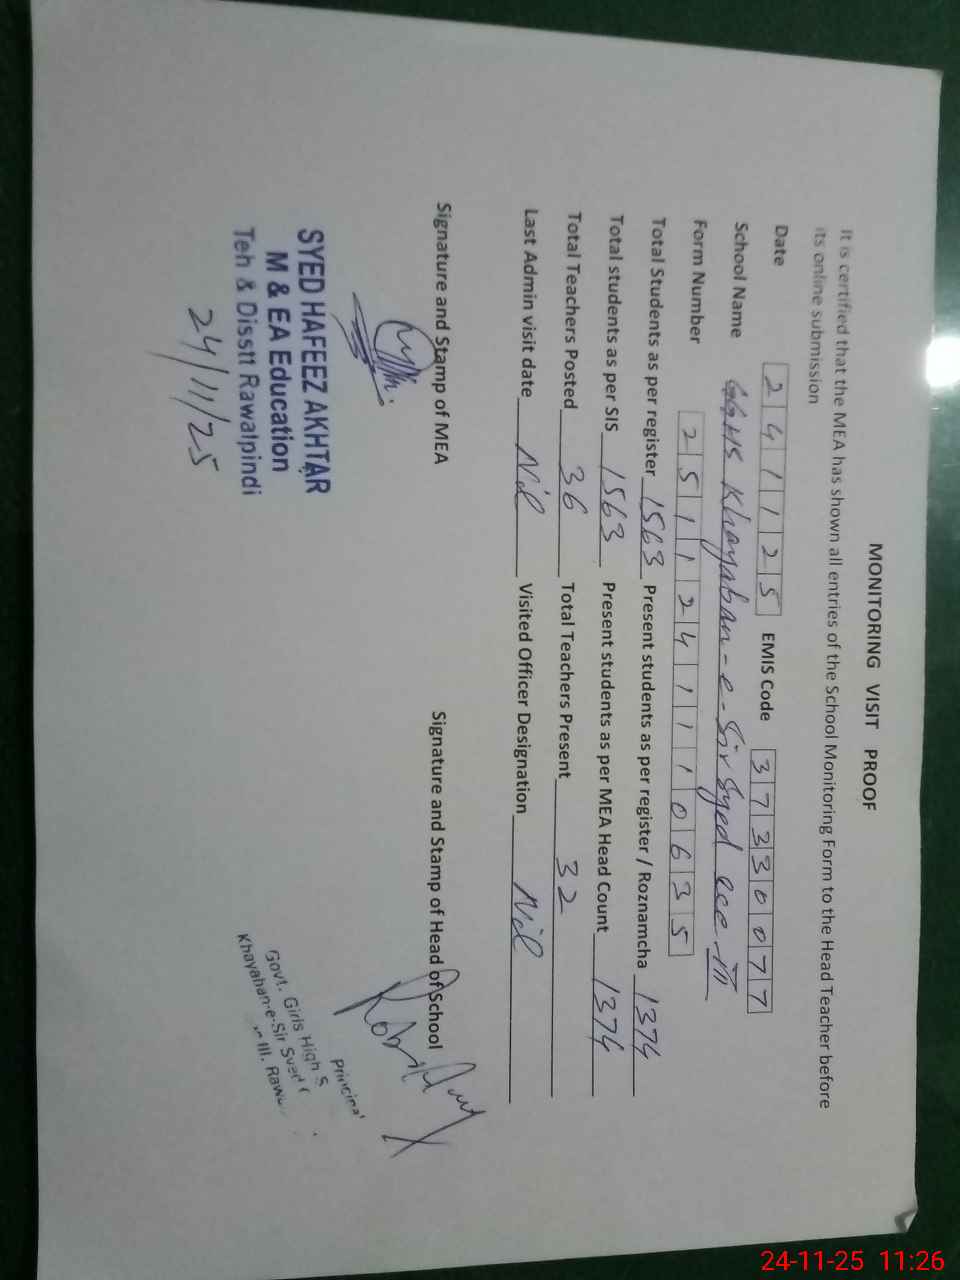 MONITORING VISIT PROOF
It is certified that the MEA has shown all entries of the School Monitoring Form to the Head Teacher before
its online submission
Date 2 4 1 1 2 5 EMIS Code 3 7 3 3 0 0 7 7
School Name GGHS Khayaban-e-Sir Syed Sec III
Form Number 2 5 1 1 2 4 1 1 1 0 6 3 5
Total Students as per register 1563 Present students as per register / Roznamcha 1374
Total students as per SIS 1563 Present students as per MEA Head Count 1374
Total Teachers Posted 36 Total Teachers Present 32
Last Admin visit date Nil Visited Officer Designation Nil
Signature and Stamp of MEA Signature and Stamp of Head of School
SYED HAFEEZ AKHTAR
M & EA Education
Teh & Disstt Rawalpindi
24/11/25
Principal
Govt. Girls High S
Khayaban-e-Sir Syed
III. Raw
24-11-25 11:26